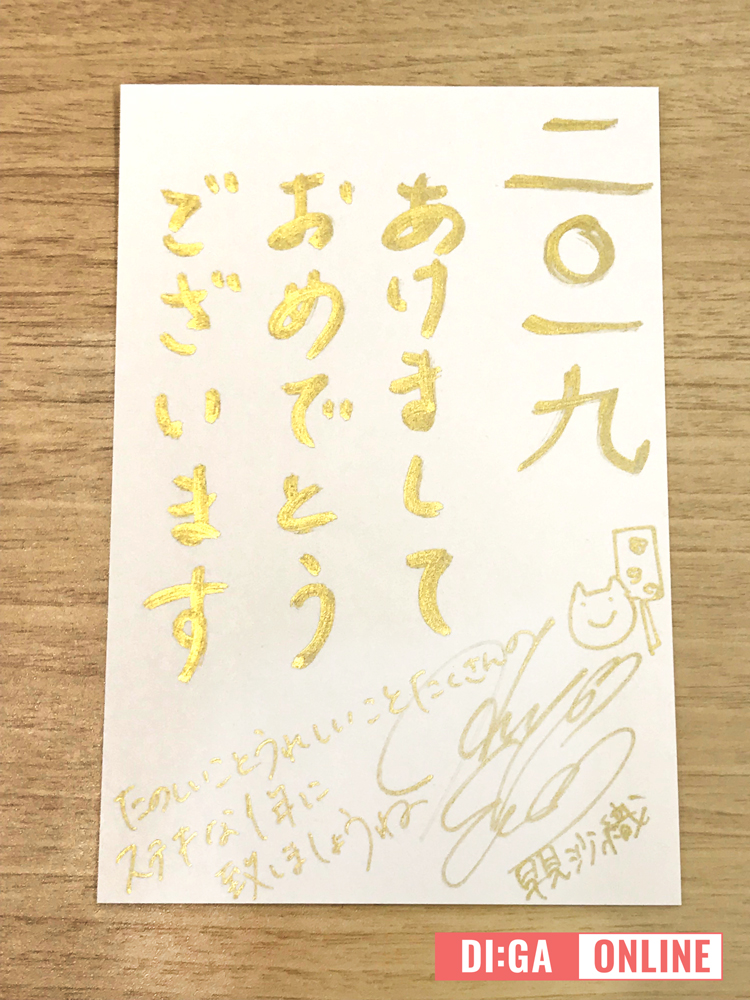 二〇一九
あけまして
おめでとう
ございます
たのしいことうれしいことたくさんの
ステキな1年に
致しましょうね
沙織
DI:GA ONLINE